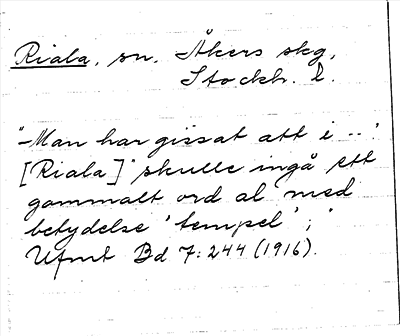 Riala, sn. Åkers skg,
Stockh. l.
"-Man har gissat att i ...
[Riala]" skulle ingå ett
gammalt ord al med
betydelse 'tempel';"
Ufmt Bd 7:244 (1916).